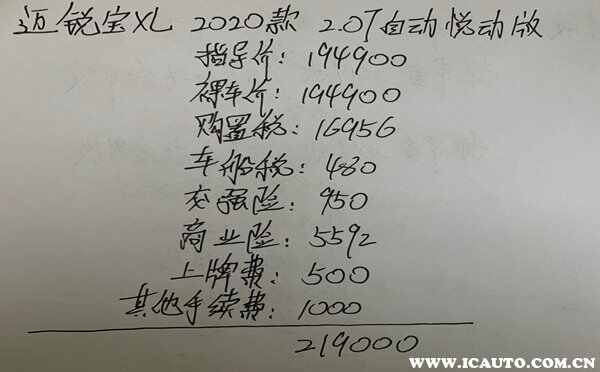 迈锐宝XL 2020款 2.0T自动悦动版
指导价: 194900
裸车价: 194900
购置税: 16956
车船税: 480
交强险: 950
商业险: 5592
上牌费: 500
其他手续费: 1000
219000
WWW.ICAUTO.COM.CN